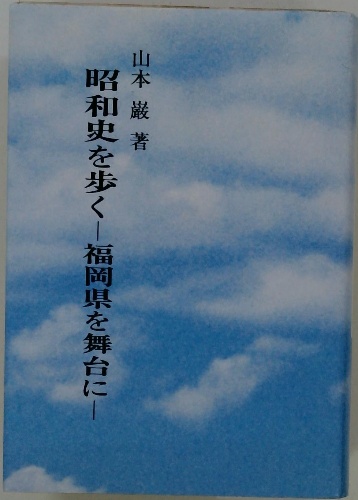 山本 巌 著
昭和史を歩く
―福岡県を舞台に―